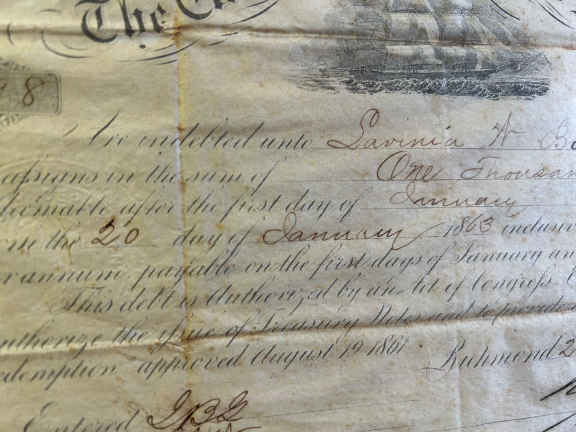 The
8
Are indebted unto Lavinia W
assigns in the sum of One Thousan
deemable after the first day of January
the 20 day of January 1863 inclusiv
r annum, payable on the first days of January an
This debt is Authorized by an Act of Congress
uthorize the issue of Treasury Notes and to provide
demption" approved August 19 1861. Richmond 2
Entered